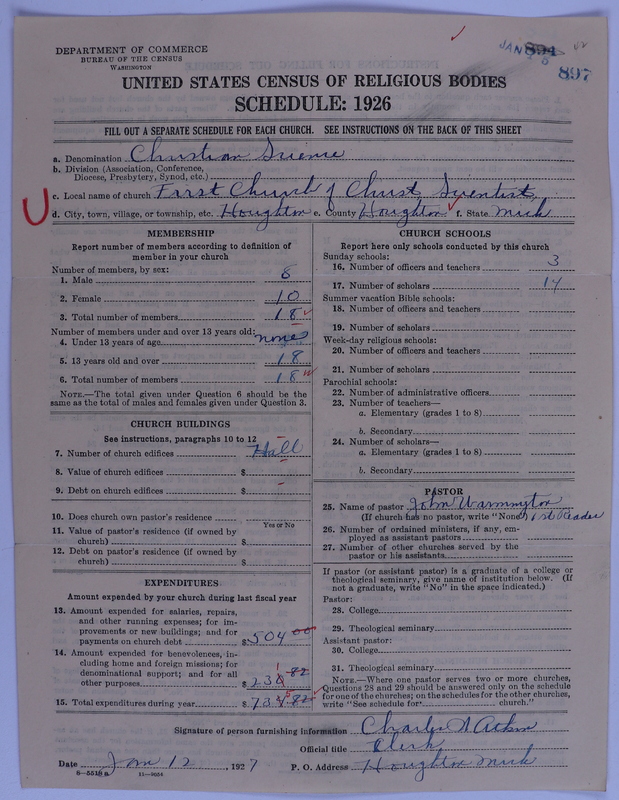 DEPARTMENT OF COMMERCE
BUREAU OF THE CENSUS
WASHINGTON
JAN
894
897
UNITED STATES CENSUS OF RELIGIOUS BODIES
SCHEDULE: 1926
FILL OUT A SEPARATE SCHEDULE FOR EACH CHURCH. SEE INSTRUCTIONS ON THE BACK OF THIS SHEET
a. Denomination Christian Science
b. Division (Association, Conference,
Diocese, Presbytery, Synod, etc.)
c. Local name of church First Church of Christ, Scientist,
d. City, town, village, or township, etc. Houghton e. County Houghton f. State Mich
MEMBERSHIP
Report number of members according to definition of
member in your church
Number of members, by sex:
1. Male 8
2. Female 10
3. Total number of members 18
Number of members under and over 13 years old:
4. Under 13 years of age none
5. 13 years old and over 18
6. Total number of members 18
NOTE.—The total given under Question 6 should be
same as the total of males and females given under Question 3.
CHURCH BUILDINGS
See instructions, paragraphs 10 to 12
7. Number of church edifices Hall
8. Value of church edifices $
9. Debt on church edifices $
10. Does church own pastor's residence
Yes or No
11. Value of pastor's residence (if owned by
church) $
12. Debt on pastor's residence (if owned by
church) $
EXPENDITURES
Amount expended by your church during last fiscal year
13. Amount expended for salaries, repairs,
and other running expenses; for im-
provements or new buildings; and for
payments on church debt $ 504 00
14. Amount expended for benevolences, in-
cluding home and foreign missions; for
denominational support; and for all
other purposes $ 230 82
15. Total expenditures during year $ 734 82
CHURCH SCHOOLS
Report here only schools conducted by this church
Sunday schools:
16. Number of officers and teachers 3
17. Number of scholars 14
Summer vacation Bible schools:
18. Number of officers and teachers
19. Number of scholars
Week-day religious schools:
20. Number of officers and teachers
21. Number of scholars
Parochial schools:
22. Number of administrative officers
23. Number of teachers—
a. Elementary (grades 1 to 8)
b. Secondary
24. Number of scholars—
a. Elementary (grades 1 to 8)
b. Secondary
PASTOR
25. Name of pastor John Warmington
(If church has no pastor, write "None") 1st Reader
26. Number of ordained ministers, if any, em-
ployed as assistant pastors
27. Number of other churches served by the
pastor or his assistants
If pastor (or assistant pastor) is a graduate of a college or
theological seminary, give name of institution below. (If
not a graduate, write "No" in the space indicated.)
Pastor:
28. College
29. Theological seminary
Assistant pastor:
30. College
31. Theological seminary
NOTE.—Where one pastor serves two or more churches,
Questions 28 and 29 should be answered only on the schedule
for one of the churches; on the schedules for the other churches,
write "See schedule for church."
Signature of person furnishing information Charles N Atkin
Official title Clerk
Date Jan 12, 1927 P. O. Address Houghton Mich
8—5518 a 11—9054